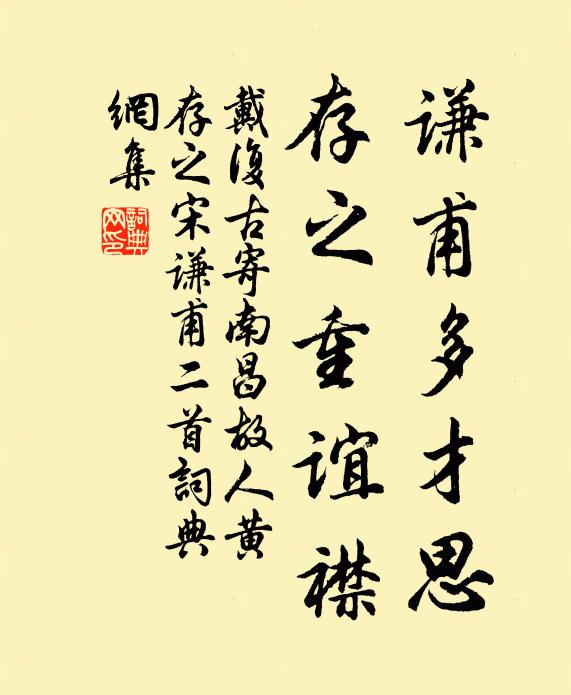 谦甫多才思
存之重谊襟
戴復古寄南昌故人黄
存之宋谦甫二首詞典
網集
詞典网印